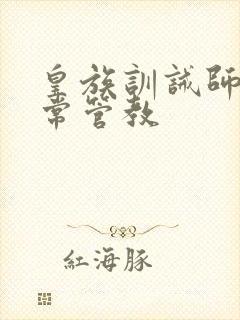 皇族訓誡師
常管教
紅海豚